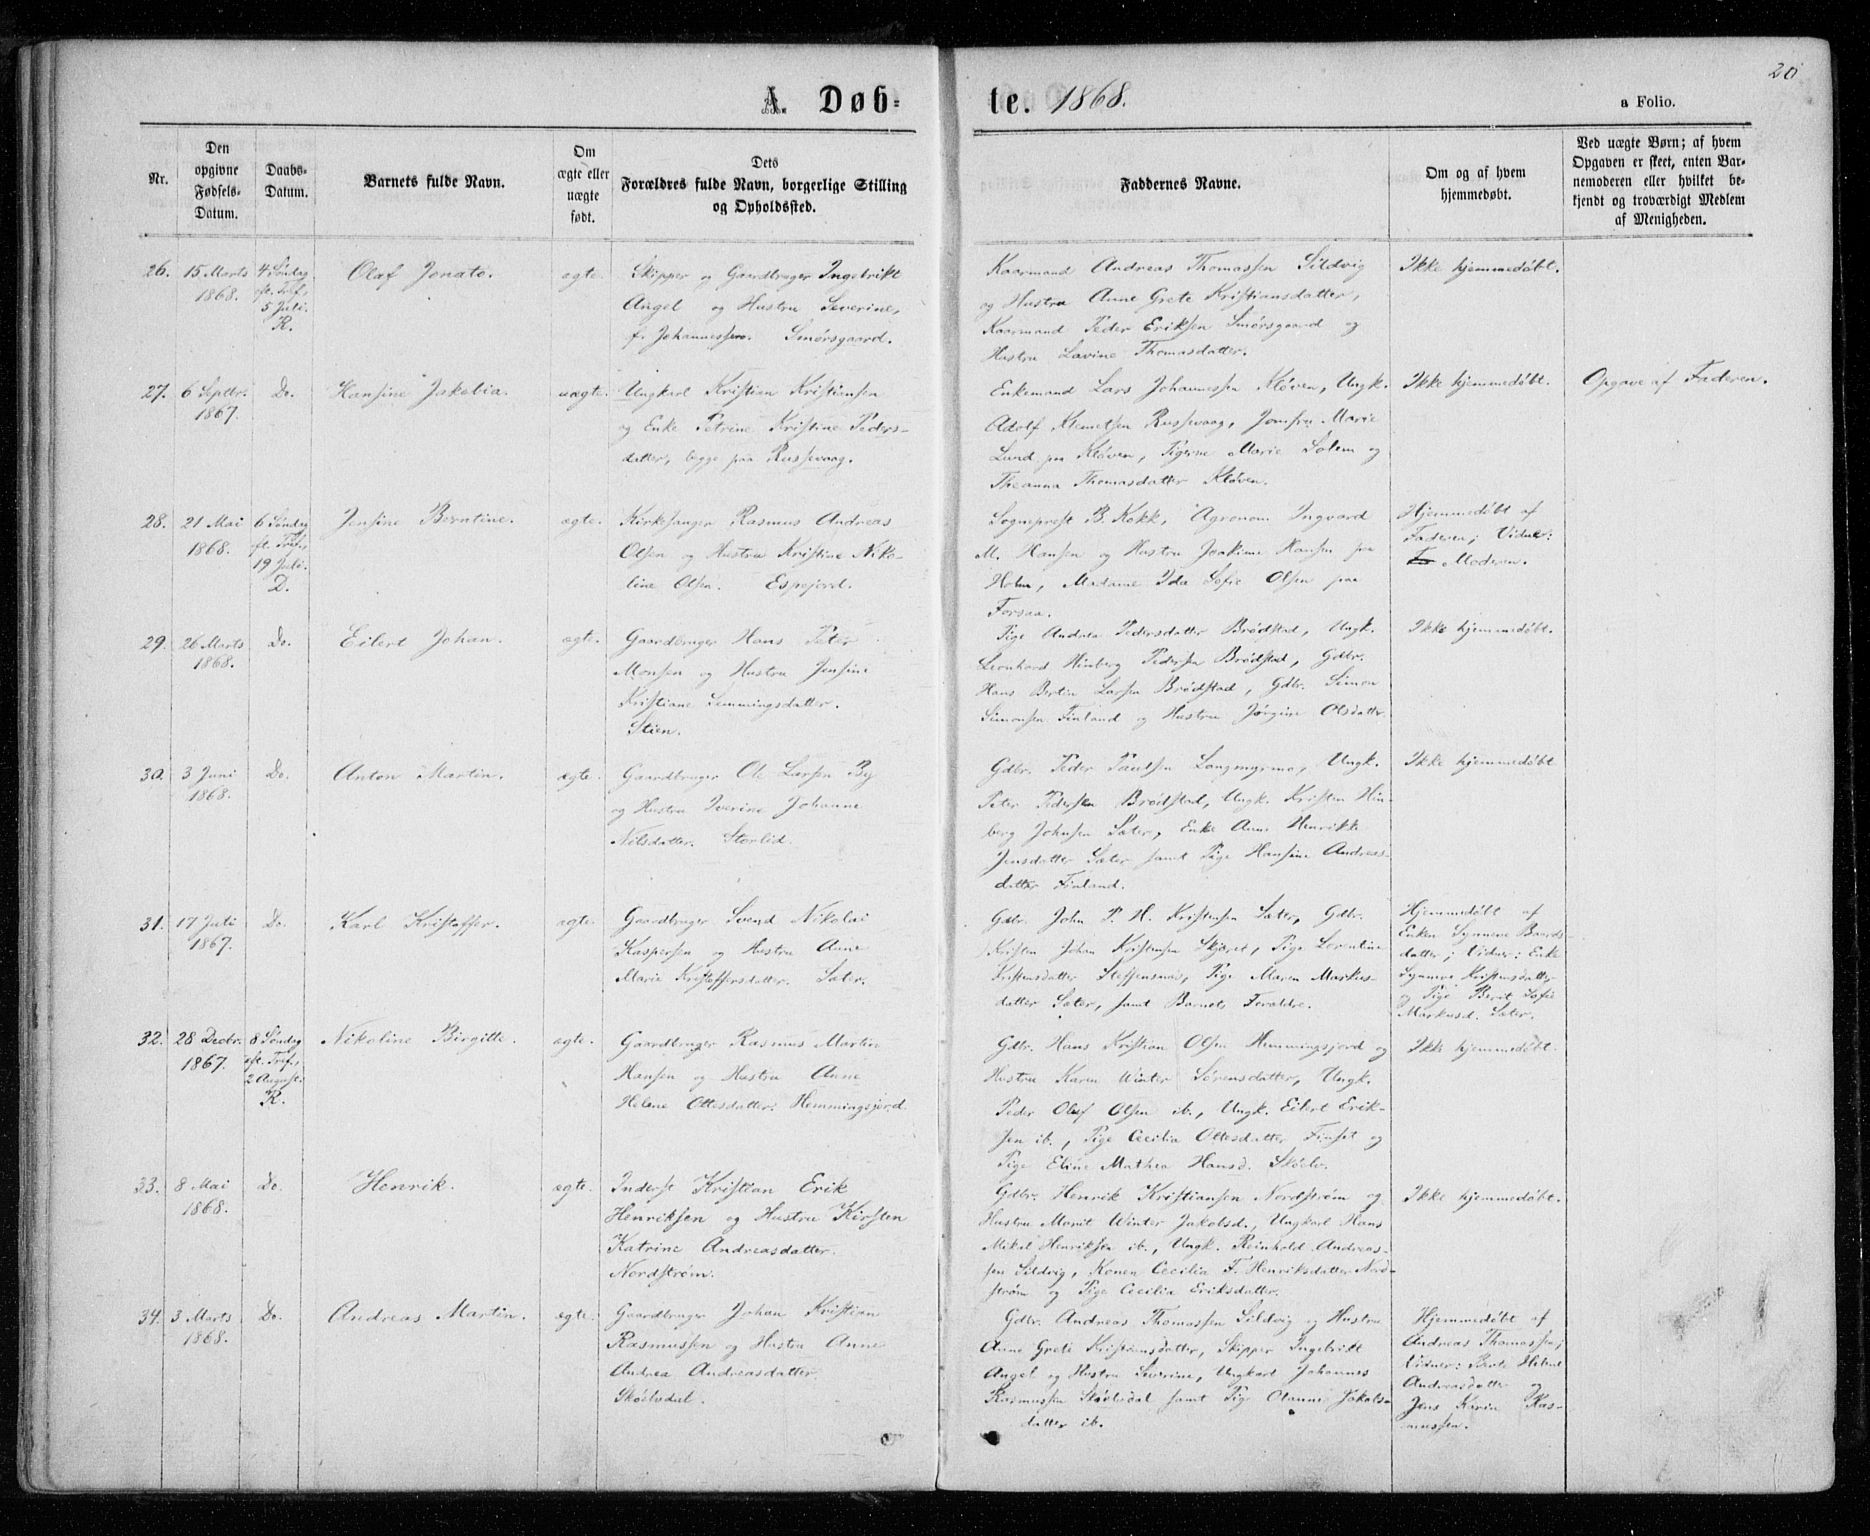 20
A. Døb-
te. 1868.
a Folio.
Nr.
Den
opgivne
Fødsels-
Datum.
Daabs-
Datum.
Barnets fulde Navn.
Om
ægte eller
uægte
født.
Dets
Forældres fulde Navn, borgerlige Stilling
og Opholdssted.
Faddernes Navne.
Om og af hvem
hjemmedøbt.
Ved uægte Børn; af hvem
Opgaven er skeet, enten Bar-
nemoderen eller hvilket be-
kjendt og troværdigt Medlem
af Menigheden.
26.
15 Marts
1868.
4 Søndag
eft. Tref.,
5 Juli.
R.
Olaf Jonato.
ægte.
Skipper og Gaardbruger Ingebrikt
Angel og Hustru Severine,
f. Johannessen. Smørsgaard.
Kaarmand Andreas Thomassen Sildvig
og Hustru Anne Grete Kristiansdatter,
Kaarmand Peder Eriksen Smørsgaard og
Hustru Lavine Thomasdatter.
Ikke hjemmedøbt.
27.
6 Septbr.
1867.
Do.
Hansine Jakobia.
uægte.
Ungkarl Kristian Kristiansen
og Enke Petrine Kristine Peders-
datter, begge paa Russevaag.
Enkemand Lars Johannessen Kløven, Ungk.
Adolf Klemetsen Russevaag, Jomfru Marie
Lund paa Kløven, Pigerne Marie Solem og
Theanna Thomasdatter Kløven.
Ikke hjemmedøbt.
Opgave af Faderen.
28.
21 Mai
1868.
6 Søndag
eft. Tref.,
19 Juli.
D.
Jensine Berntine.
ægte.
Kirkesanger Rasmus Andreas
Olsen og Hustru Kristine Niko-
line Olsen. Espejord.
Sogneprest B. Kokk, Agronom Ingvard
M. Hansen og Hustru Joakime Hansen paa
Holm, Madame Ida Sofie Olsen paa
Forsaa.
Hjemmedøbt af
Faderen; Vidner:
Moderen.
29.
26 Marts
1868.
Do.
Eilert Johan.
ægte.
Gaardbruger Hans Peter
Monsen og Hustru Jensine
Kristiane Lemmingsdatter.
Stien.
Pige Andrea Pedersdatter Brødstad, Ungk.
Leonhard Hinberg Pedersen Brødstad, Gdbr.
Hans Bertin Larsen Brødstad, Gdbr. Simon
Simonsen Finland og Hustru Jørgine Olsdatter.
Ikke hjemmedøbt.
30.
3 Juni
1868.
Do.
Anton Martin.
ægte.
Gaardbruger Ole Larsen By
og Hustru Iverine Johanne
Nilsdatter. Storlid.
Gdbr. Peder Paulsen Langmyrmo, Ungk.
Peter Pedersen Brødstad, Ungk. Kristen Hin-
berg Johnsen Sæter, Enke Anne Henrikke
Jensdatter Sæter samt Pige Hansine Andreas-
datter Finland.
Ikke hjemmedøbt
31.
17 Juli
1867.
Do.
Karl Kristoffer.
ægte.
Gaardbruger Svend Nikolai
Kaspersen og Hustru Anne
Marie Kristoffersdatter. Sæter.
Gdbr. John P. H. Kristensen Sæter, Gdbr.
Kristen Johan Kristensen Skjæret, Pige Lorentine
Kristensdatter Steffensnæs, Pige Maren Markus-
datter Sæter, samt Barnets Forældre.
Hjemmedøbt af
Enken Synnøve Baards-
datter; Vidner: Enke
Synnøve Kristensdatter
og Pige Berit Sofie
Markusd. Sæter.
32.
28 Decbr.
1867.
8 Søndag
eft. Tref.,
2 August.
R.
Nikoline Birgitte.
ægte.
Gaardbruger Rasmus Martin
Hansen og Hustru Anne
Helene Ottesdatter. Hemmingsjord.
Gdbr. Hans Kristian Olsen Hemmingsjord og
Hustru Karen Winter Sørensdatter, Ungk.
Peder Oluf Olsen ib., Ungk. Eilert Erik-
sen ib., Pige Cecilia Ottesdatter Finset og
Pige Eline Mathea Hansd. Skøelv.
Ikke hjemmedøbt.
33.
8 Mai
1868.
Do.
Henrik.
ægte.
Inderst Kristian Erik
Henriksen og Hustru Kirsten
Katrine Andreasdatter.
Nordstrøm.
Gdbr. Henrik Kristiansen Nordstrøm og
Hustru Marit Winter Jakobsd., Ungkarl Hans
Mikal Henriksen ib., Ungk. Reinhold Andreas-
sen Sildvig, Konen Cecilia F. Henriksdatter Nord-
strøm og Pige Cecilia Eriksdatter.
Ikke hjemmedøbt.
34.
3 Marts
1868.
Do.
Andreas Martin.
ægte.
Gaardbruger Johan Kristian
Rasmussen og Hustru Anne
Andrea Andreasdatter.
Skøelvdal.
Gdbr. Andreas Thomassen Sildvig og Hustru
Anne Grete Kristiansdatter, Skipper Ingebrikt
Angel og Hustru Severine, Ungkarl Johannes
Rasmussen Skøelvdal samt Pige Olanna Jakobs-
datter ib.
Hjemmedøbt af
Andreas Thomassen;
Vidner: Berte Helene
Andreasdatter og
Jens Karia Ras-
mussen.